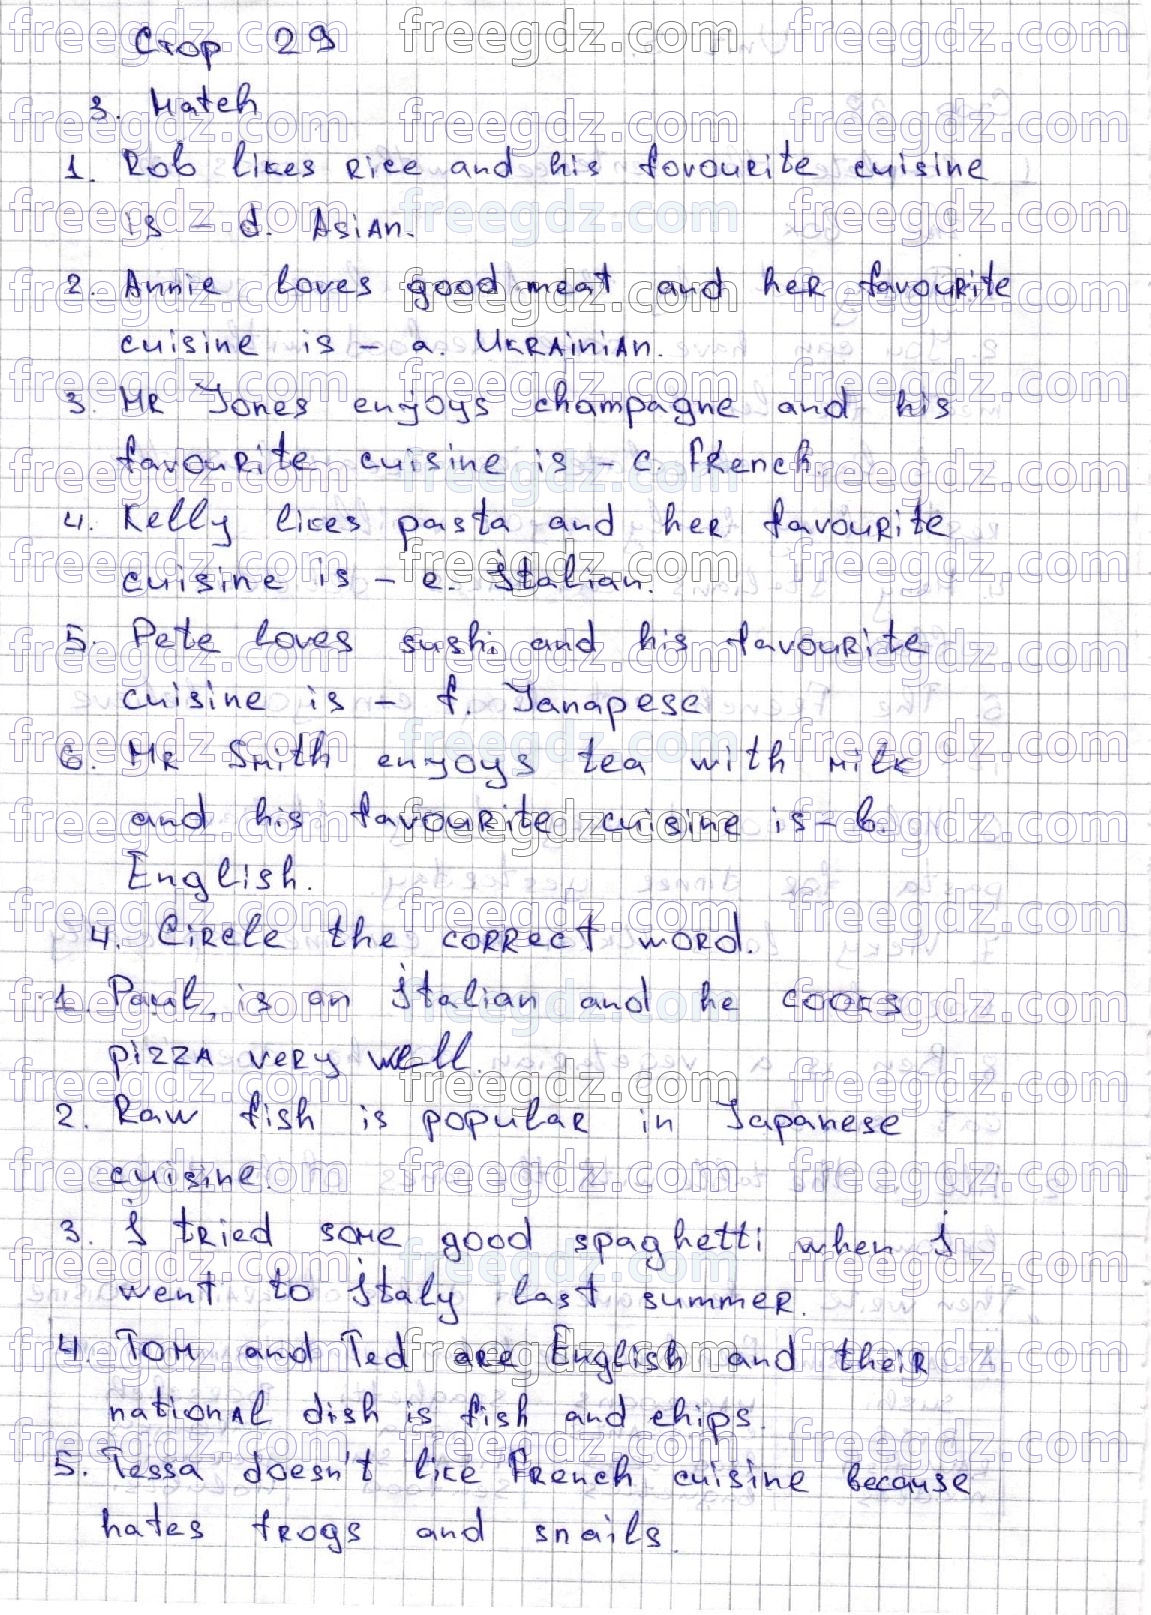 Стор 29
3. Match
1. Rob likes rice and his favourite cuisine
is – d. Asian.
2. Annie loves good meat and her favourite
cuisine is – a. Ukrainian.
3. Mr Jones enjoys champagne and his
favourite cuisine is – c. French.
4. Kelly likes pasta and her favourite
cuisine is – e. Italian.
5. Pete loves sushi and his favourite
cuisine is – f. Janapese
6. Mr Smith enjoys tea with milk
and his favourite cuisine is – b.
English.
4. Circle the correct word.
1. Paul is an Italian and he cooks
pizza very well.
2. Raw fish is popular in Japanese
cuisine.
3. I tried some good spaghetti when I
went to Italy last summer.
4. Tom and Ted are English and their
national dish is fish and chips.
5. Tessa doesn't like French cuisine because
hates frogs and snails.
freegdz.com